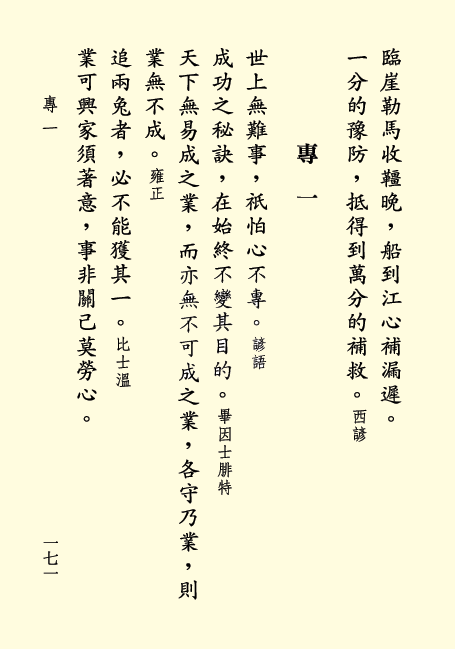 臨崖勒馬收韁晚，船到江心補漏遲。
一分的豫防，抵得到萬分的補救。西諺
專一
世上無難事，祇怕心不專。諺語
成功之秘訣，在始終不變其目的。畢因士腓特
天下無易成之業，而亦無不可成之業，各守乃業，則
業無不成。雍正
追兩兔者，必不能獲其一。比士溫
業可興家須著意，事非關己莫勞心。
專一
一七一